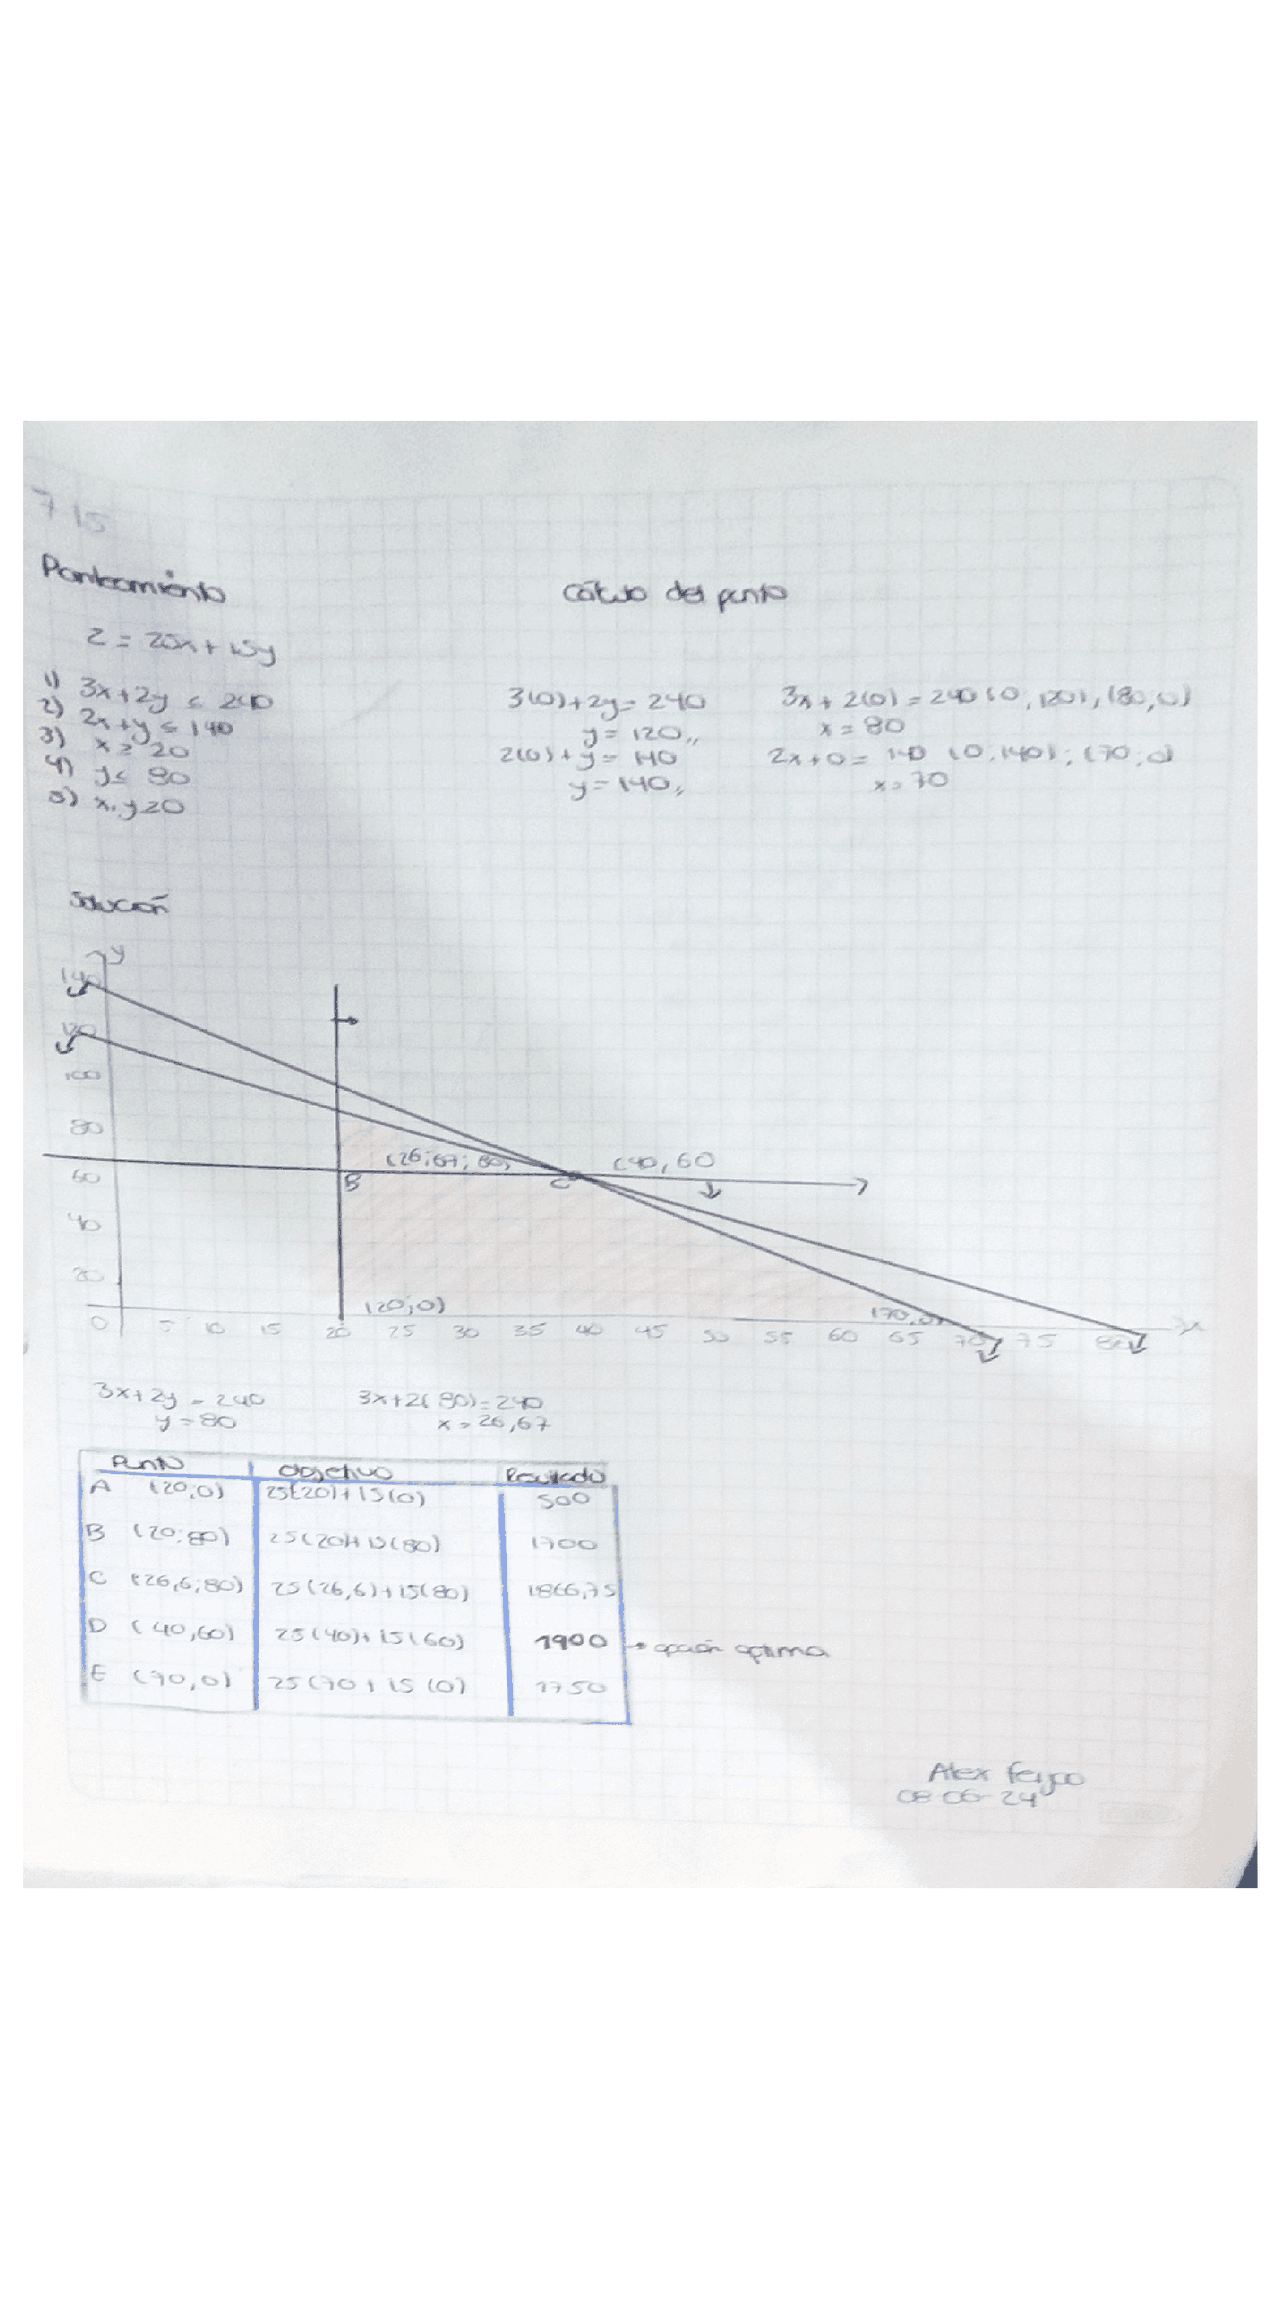 7 15
Planteamiento
Z = 25x + 15y
1) 3x+2y ≤ 240
2) 2x+y ≤ 140
3) x ≥ 20
4) y ≤ 80
5) x, y ≥ 0
Cálculo del punto
3(0)+2y = 240    3x + 2(0) = 240 (0; 120), (80; 0)
y = 120,,    x = 80
2(0)+y = 140    2x+0 = 140 (0; 140); (70; 0)
y = 140,,    x = 70
Solución
y
140
120
100
80
60
40
20
(26,67; 80)    (40, 60
B    C
(20; 0)    (70, 0)
0 5 10 15 20 25 30 35 40 45 50 55 60 65 70 75 80 x
3x+2y = 240    3x+2(80) = 240
y = 80    x = 26,67
Punto    Objetivo    Resultado
A (20; 0)    25(20)+15(0)    500
B (20; 80)    25(20)+15(80)    1700
C (26,6; 80)    25(26,6)+15(80)    1866,75
D (40, 60)    25(40)+15(60)    1900 → opción optima
E (70, 0)    25(70)+15(0)    1750
Alex
08-06-24